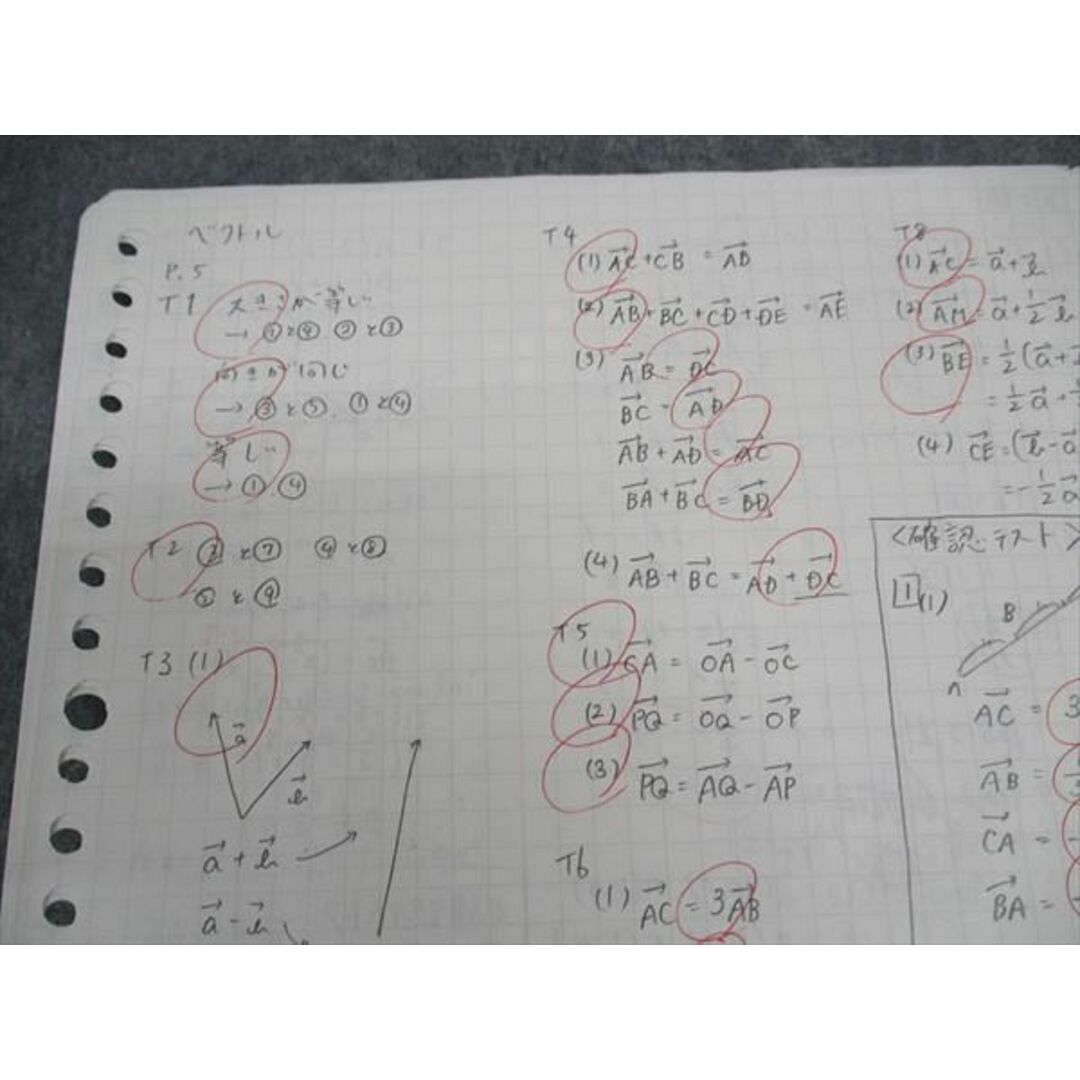 ベクトル
P.5
T1 大きさが等しい
→ ①と④ ②と③
向きが同じ
→ ③と⑤、①と④
等しい
→ ① ④
T2 と⑦ と⑧
と⑨
T3 (1)
a⃗
b⃗
a⃗ + b⃗
a⃗ - b⃗
T4
(1) AC⃗ + CB⃗ = AB⃗
(2) AB⃗ + BC⃗ + CD⃗ + DE⃗ = AE⃗
(3) AB⃗ = DC⃗
BC⃗ = AD⃗
AB⃗ + AD⃗ = AC⃗
BA⃗ + BC⃗ = BD⃗
(4) AB⃗ + BC⃗ = AD⃗ + DC⃗
T5
(1) CA⃗ = OA⃗ - OC⃗
(2) PQ⃗ = OQ⃗ - OP⃗
(3) PQ⃗ = AQ⃗ - AP⃗
T6
(1) AC⃗ = 3AB⃗
T8
(1) AC⃗ = a⃗ + b⃗
(2) AM⃗ = a⃗ + 1/2 b⃗
(3) BE⃗ = 1/2 (a⃗ +
= 1/2 a⃗ +
(4) CE⃗ = (b⃗ - a⃗
= -1/2 a⃗
<確認テスト>
1 (1)
B
A
AC⃗ = 3
AB⃗ =
CA⃗ = -
BA⃗ = -